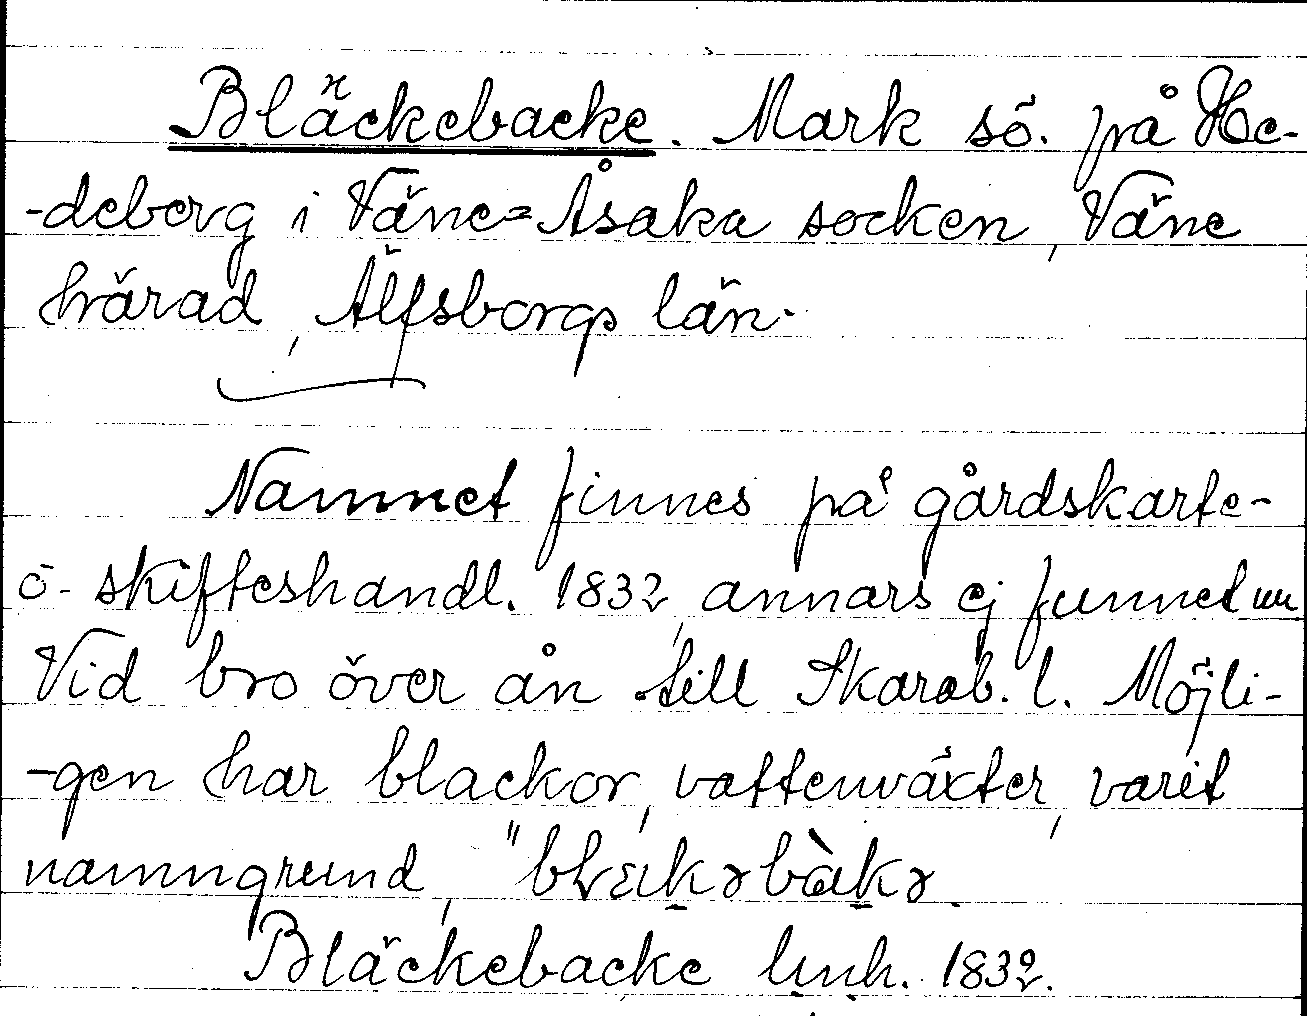 Bläckebacke. Mark sö. på He-
-deberg i Väne=Åsaka socken, Väne
härad, Älfsborgs län.
Namnet finnes på gårdskarte-
o- skifteshandl. 1832, annars ej funnet
Vid bro över ån till Skarab. l. Möjli-
-gen har blackor, vattenväxter, varit
namngrund,
Bläckebacke lmh. 1832.